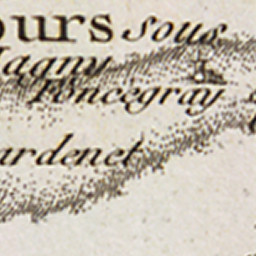 ours sous
Magny
Poncegray
ardenet